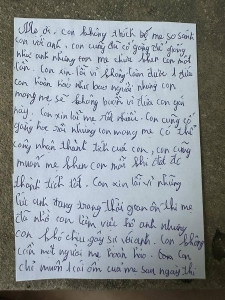 Mẹ ơi. Con không thích bị mẹ so sánh
con với anh. Con cũng đã cố gắng để giống
như anh nhưng mẹ chưa khen con một
lần. Con xin lỗi vì không làm được 1 đứa
con hoàn hảo như bao người nhưng con
mong mẹ sẽ không buồn vì đứa con gái
này. Con xin lỗi mẹ rất nhiều. Con cũng cố
gắng học rồi nhưng con mong mẹ có thể
công nhận thành tích của con, con cũng
muốn mẹ khen con mỗi khi đạt được
thành tích tốt. Con xin lỗi vì những
lúc anh đang trong thời gian ôn thi mẹ
đã nhờ con làm việc hộ anh nhưng
con khó chịu gây sự với anh. Con không
cần một người mẹ hoàn hảo. Con
chỉ muốn cái ôm của mẹ sau ngày